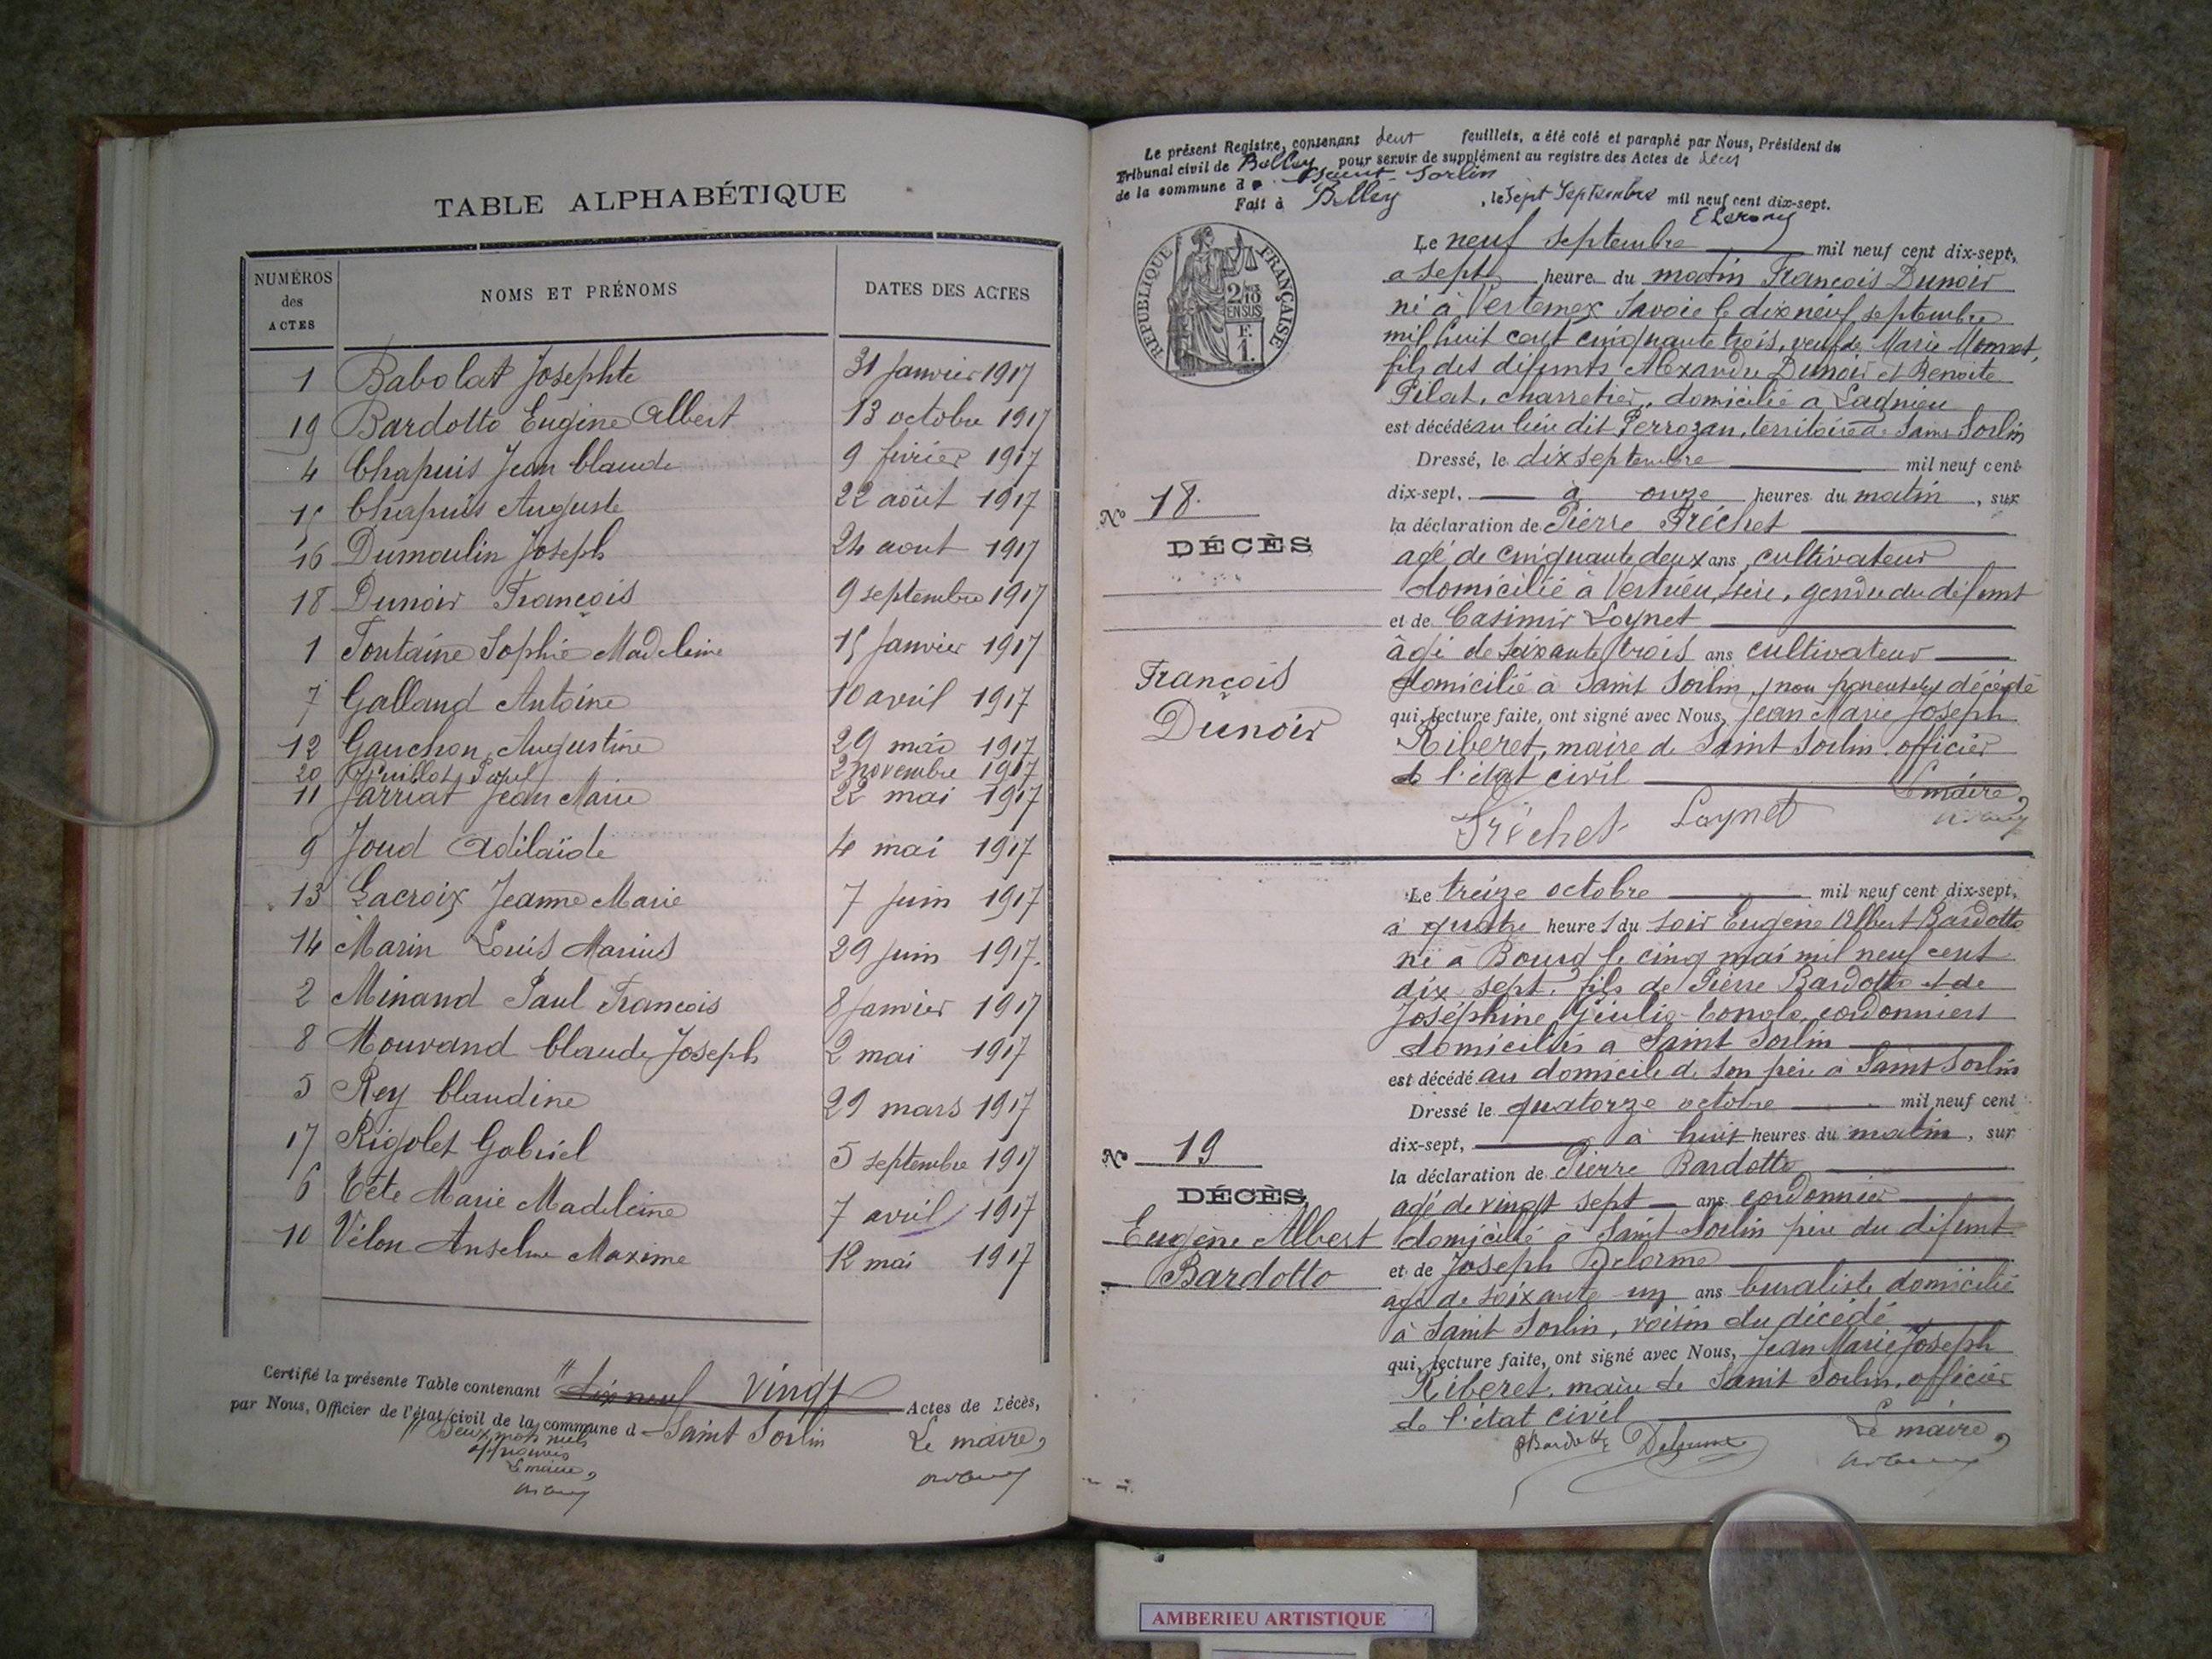 TABLE ALPHABÉTIQUE
NUMÉROS des ACTES
NOMS ET PRÉNOMS
DATES DES ACTES
1 Babolat Josephte 31 Janvier 1917
19 Bardotto Eugène Albert 13 octobre 1917
4 Chapuis Jean Claude 9 février 1917
15 Chapuis Auguste 22 août 1917
16 Dumoulin Joseph 24 aout 1917
18 Dunoir François 9 septembre 1917
1 Fontaine Sophie Madeleine 15 Janvier 1917
7 Galland Antoine 10 avril 1917
12 Gauchon Augustine 29 mai 1917
20 Guillot Paul 2 novembre 1917
11 Jarriat Jean Marie 22 mai 1917
9 Joud Adélaïde 4 mai 1917
13 Lacroix Jeanne Marie 7 Juin 1917
14 Marin Louis Marius 29 Juin 1917.
2 Minand Paul François 8 Janvier 1917
8 Mouvand Claude Joseph 2 mai 1917
5 Rey Claudine 29 mars 1917
17 Rigolet Gabriel 5 septembre 1917
6 Tête Marie Madeleine 7 avril 1917
10 Vélon Anselme Maxime 12 mai 1917
Certifié la présente Table contenant dix neuf vingt Actes de Décès,
par Nous, Officier de l'état civil de la commune d Saint Sorlin
Deux mots nuls
approuvés
Le maire,
Le maire,
Le présent Registre, contenant deux feuillets, a été coté et paraphé par Nous, Président du
Tribunal civil de Belley pour servir de supplément au registre des Actes de décès
de la commune de Saint Sorlin
Fait à Belley, le Sept Septembre mil neuf cent dix-sept.
RÉPUBLIQUE FRANÇAISE
2/10 EN SUS
F.
1.
Le neuf septembre mil neuf cent dix-sept,
a sept heure du matin François Dunoir
né à Vertemex Savoie le dix neuf septembre
mil huit cent cinquante trois, veuf de Marie Monnet,
fils des défunts Alexandre Dunoir et Benoite
Pilat, charretier, domicilié a Lagnieu
est décédé au lieu dit Perrozan, territoire de Saint Sorlin
Dressé, le dix septembre mil neuf cent
dix-sept, à onze heures du matin, sur
la déclaration de Pierre Fréchet
agé de cinquante deux ans, cultivateur
domicilié à Vertrieu, Isère, gendre du défunt
et de Casimir Loynet
âgé de soixante trois ans cultivateur
domicilié à Saint Sorlin, non parent du décédé
qui, lecture faite, ont signé avec Nous, Jean Marie Joseph
Riberet, maire de Saint Sorlin, officier
de l'état civil
Le maire,
Fréchet Loynet
No 18.
DÉCÈS
François
Dunoir
Le treize octobre mil neuf cent dix-sept,
à quatre heures du soir Eugène Albert Bardotto
né à Bourg le cinq mai mil neuf cent
dix sept, fils de Pierre Bardotto et de
Joséphine Giulia Congla, cordonniers
domiciliés a Saint Sorlin
est décédé au domicile de son père à Saint Sorlin
Dressé le quatorze octobre mil neuf cent
dix-sept, à huit heures du matin, sur
la déclaration de Pierre Bardotto
agé de vingt sept ans cordonnier
domicilié à Saint Sorlin père du défunt
et de Joseph Delorme
agé de soixante un ans buraliste domicilié
à Saint Sorlin, voisin du décédé
qui, lecture faite, ont signé avec Nous, Jean Marie Joseph
Riberet, maire de Saint Sorlin, officier
de l'état civil
Le maire,
PBardotto Delorme
No 19
DÉCÈS
Eugène Albert
Bardotto
AMBERIEU ARTISTIQUE